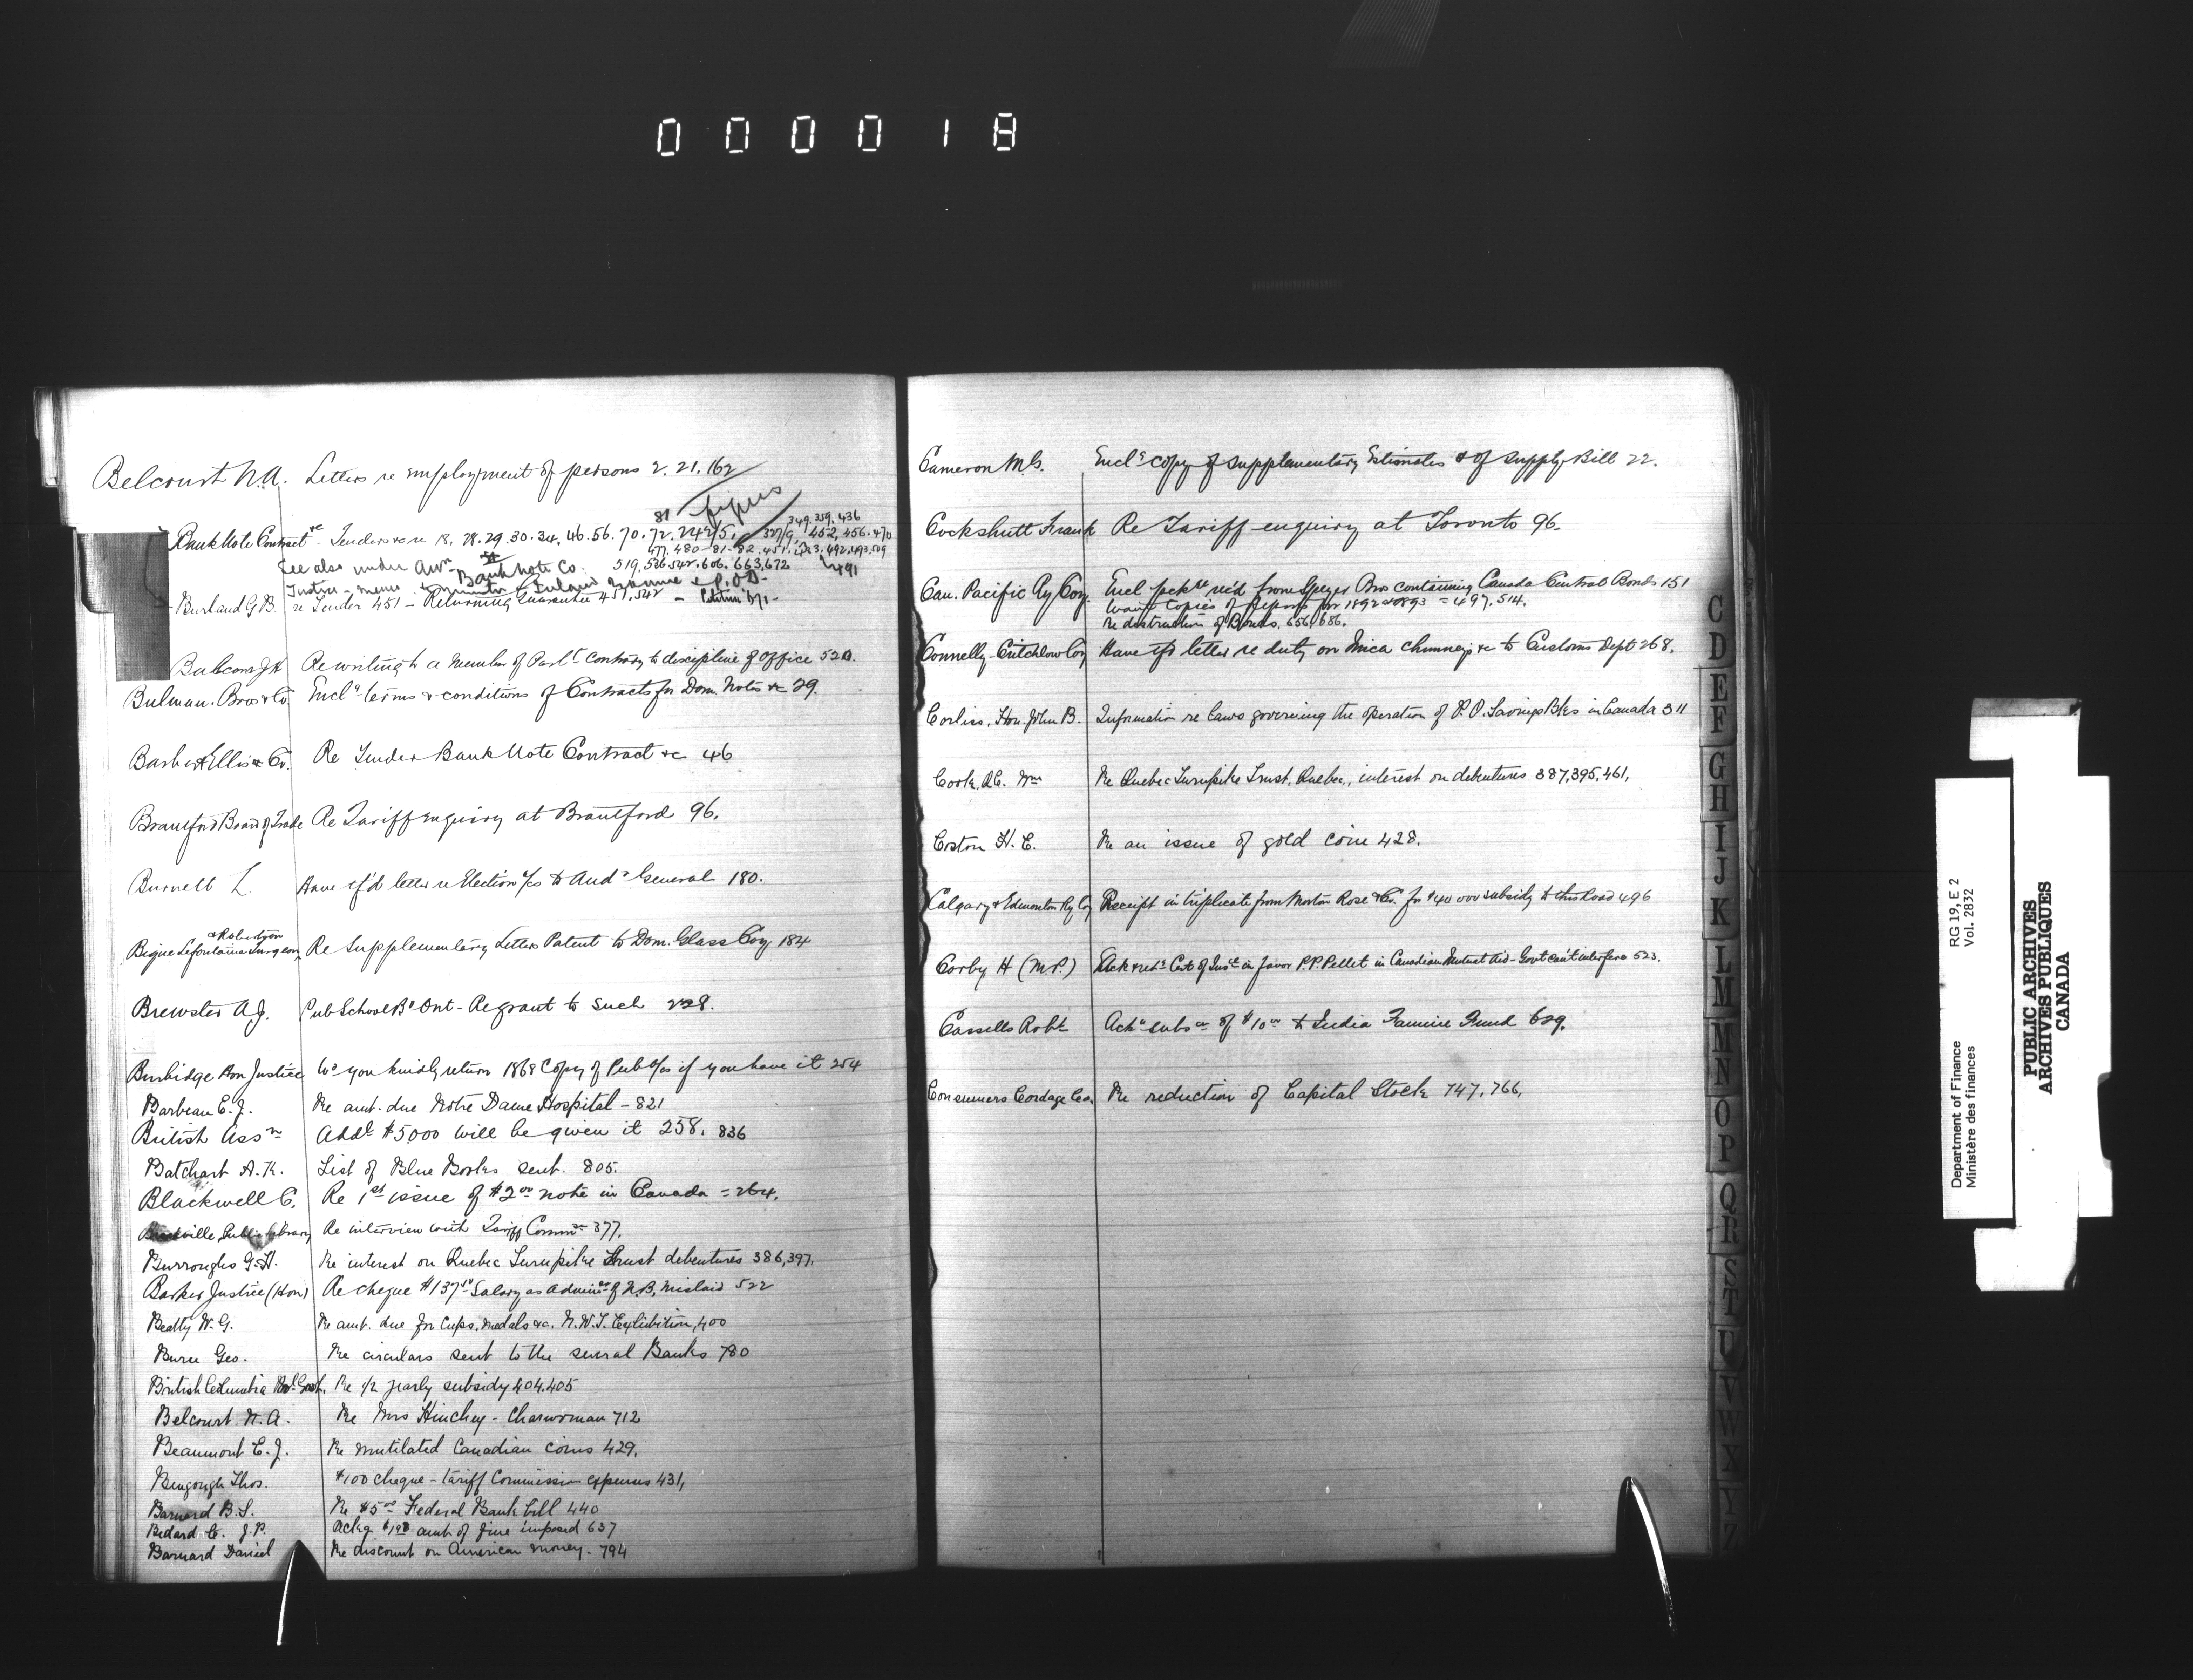 000018
Belcourt N.A. Letters re employment of persons 2. 21. 162
81
Bank Note Contract Tenders &c re 18. 28. 29. 30. 34. 46. 56. 70. 72. 349. 359. 436
452, 456. 470
477. 480-81-82. 451. 492, 493, 509
See also under Bank Note Co. 519. 536 542. 606. 663, 672 491
Burland G.B. re Tender 451 - Returning Guarantee 451, 542
Re writing to a Member of Parlt contrary to discipline of Office 520.
Bulman Bros & Co. Encl's terms & conditions of Contracts for Dom. Notes &c 29.
Barber & Ellis & Co. Re Tender Bank Note Contract &c 46
Brantford Board of Trade Re Tariff enquiry at Brantford 96.
Burnett L. Have rf'd letter re Election a/cs to Audr General 180.
& Robertson
Bique Lefontaine Turgeon Re Supplementary Letters Patent to Dom. Glass Coy 184
Brewster A.J. Pub School Bd Ont - Re grant to such 228.
Burbidge Hon Justice Wd you kindly return 1868 Copy of Pub a/cs if you have it 254
Barbeau E.J. Re amt. due Notre Dame Hospital - 821
British Assn Addl $5000 will be given it 258. 836
Batchart A.K. List of Blue Books sent. 805.
Blackwell C. Re 1st issue of $2.00 note in Canada = 264.
Public Library Re interview with Tariff Commn 377.
Burroughs G.H. Re interest on Quebec Turnpike Trust debentures 386, 397.
Barker Justice (Hon) Re cheque $137.50 Salary as Admin of N.B. mislaid 522
Beatty W.G. Re amt. due for Cups, Medals &c. N.W.T. Exhibition, 400
Burn Geo. Re circulars sent to the several Banks 780
British Columbia Govt. Re 1/2 yearly subsidy 404, 405
Belcourt N.A. Re Mrs Hinchey - Charwoman 712
Beaumont E.J. Re mutilated Canadian coins 429.
Bengough Thos. $100 cheque - tariff Commission expenses 431,
Barnard B.S. Re $5.00 Federal Bank bill 440
Bedard C. J.P. Ackg amt of fine imposed 637
Barnard Daniel Re discount on American money - 794
Cameron Encl's copy of Supplementary Estimates & of Supply Bill 22.
Cockshutt Frank Re Tariff enquiry at Toronto 96.
Can. Pacific Ry Coy. Encl pckt rec'd from Speyer Bros containing Canada Central Bonds 151
Want Copies of Reports for 1892 & 1893 = 497. 514.
Re destruction of Bonds, 656, 686.
Connelly-Critchlow Coy Have rf'd letter re duty on Mica chimneys &c to Customs Dept 268.
Corliss, Hon. John B. Information re laws governing the operation of P.O. Savings Bks in Canada 311
Cook, Wm Re Quebec Turnpike Trust, Quebec, interest on debentures 387, 395, 461,
Coston H.E. Re an issue of gold coin 428.
Calgary & Edmonton Ry Coy Receipt in triplicate from Morton Rose & Co. for $40 000 subsidy to this Road 496
Corby H (M.P.) Ack & retg Cert of Inst in favor P.P. Pellet in Canadian Mutual Aid - Govt can't interfere 523.
Cassells Robt Ackg subsn of $10.00 to India Famine Fund 629.
Consumers Cordage Co. Re reduction of Capital Stock 747, 766,
C
D
E
F
G
H
I
J
K
L
M
M
N
O
P
Q
R
S
T
U
V
W
X
Y
Z
Department of Finance
Ministère des finances
RG 19, E 2
Vol. 2832
PUBLIC ARCHIVES
ARCHIVES PUBLIQUES
CANADA